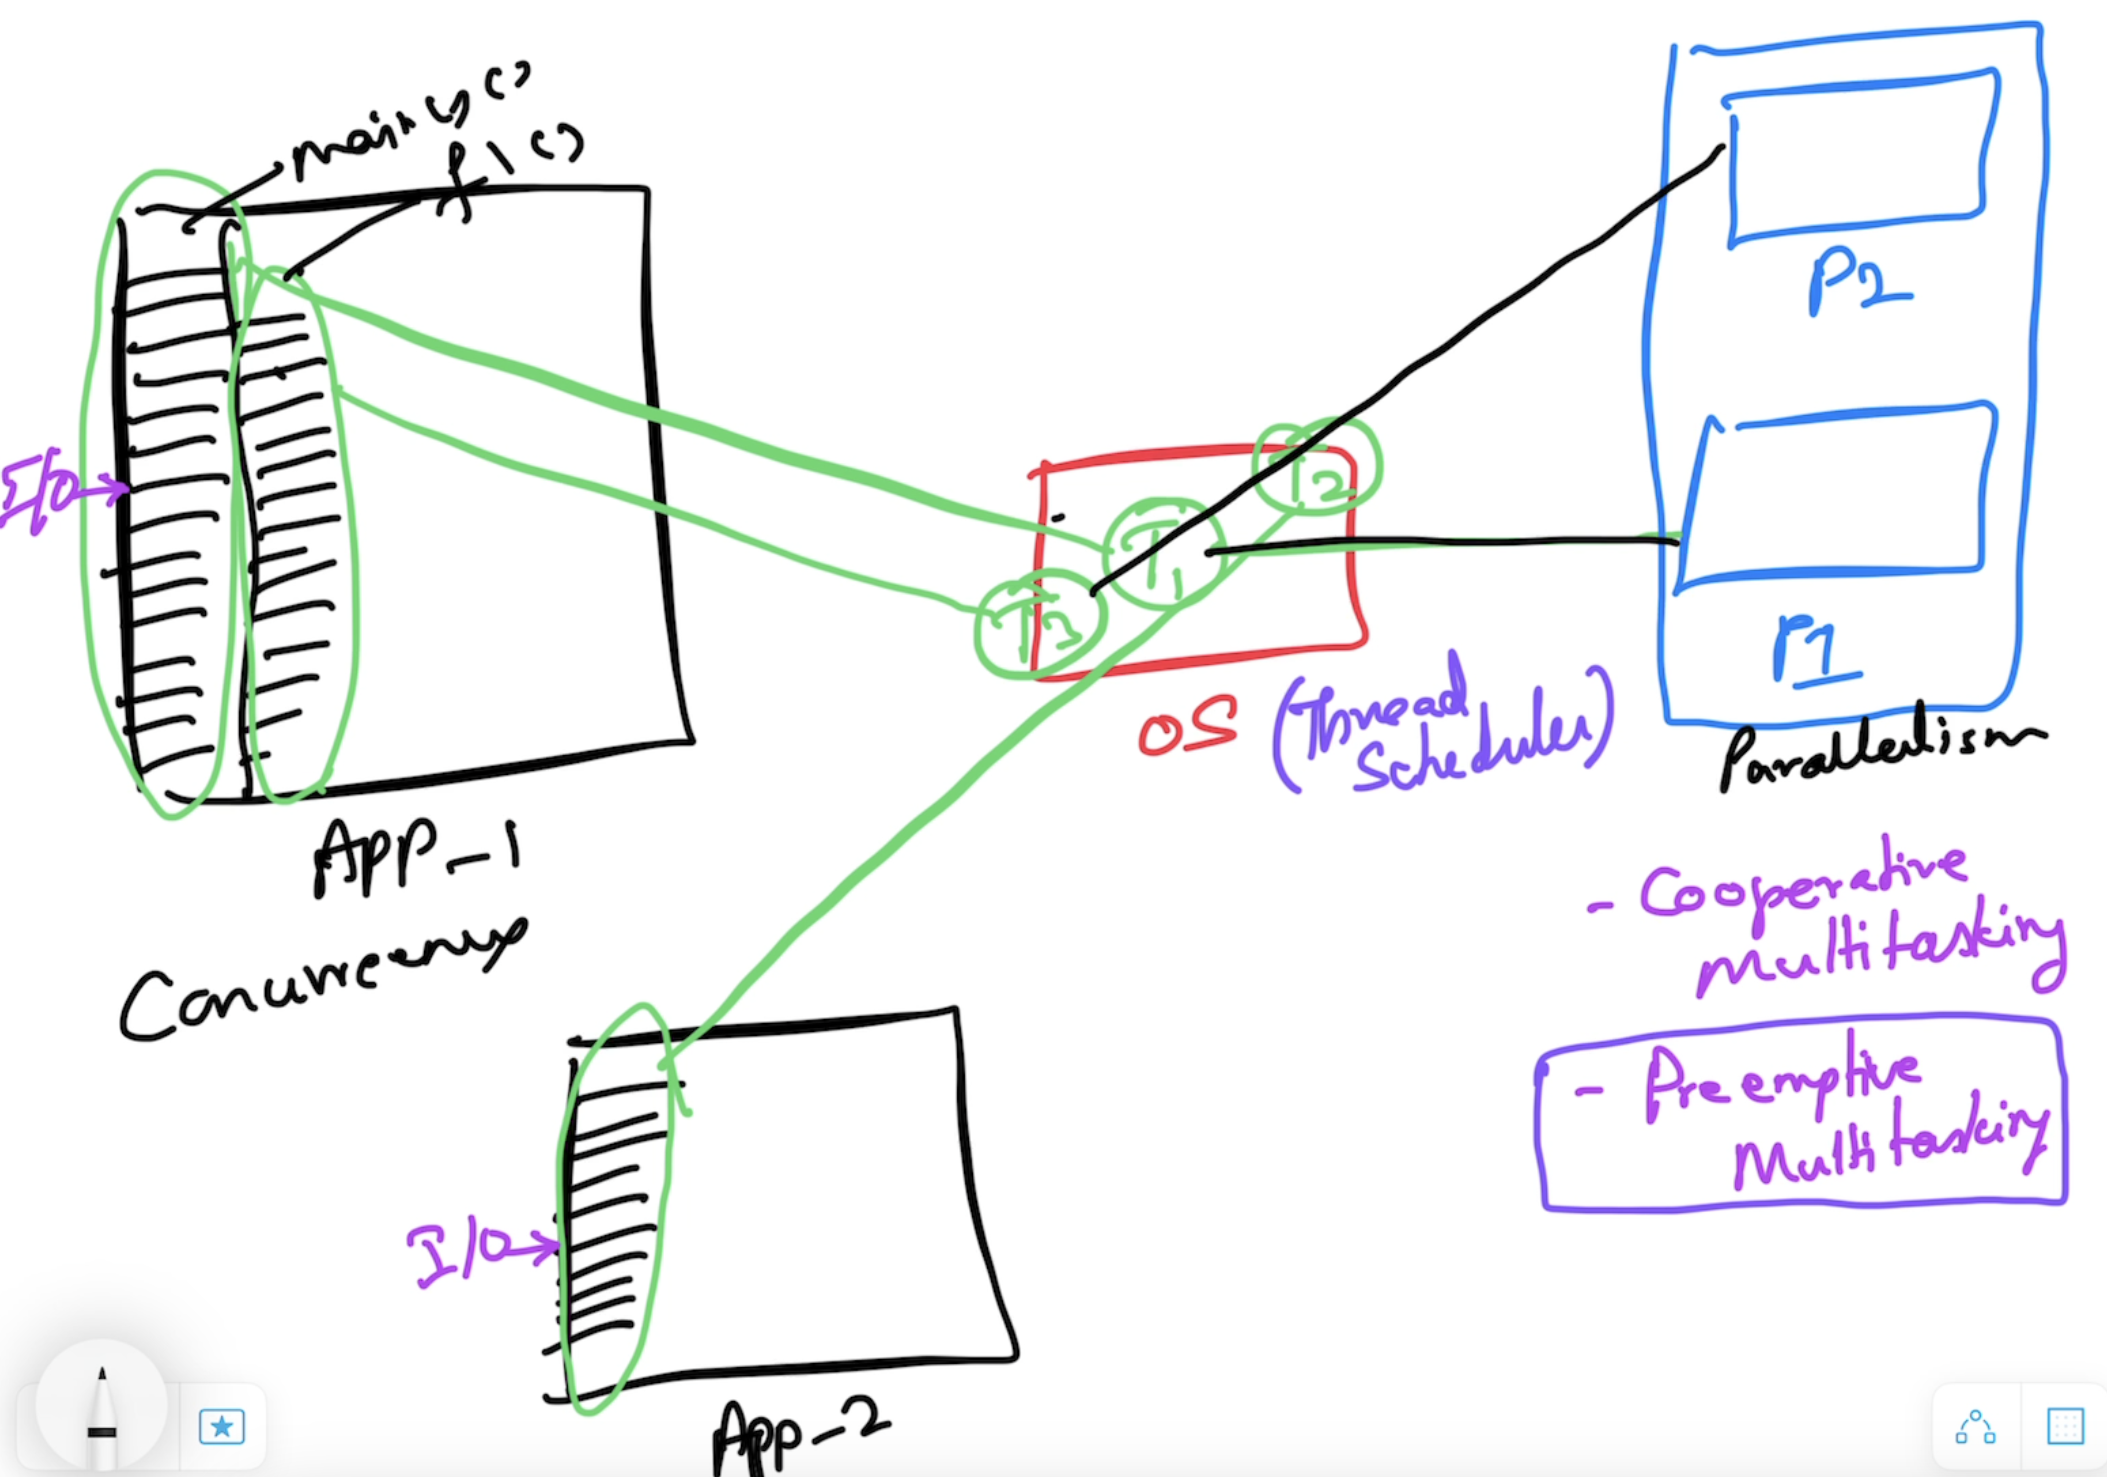 main()
f1()
I/O
App_1
Concurrency
T1
T2
T3
OS (Thread
Scheduler)
P2
P1
Parallelism
- Cooperative
Multitasking
- Preemptive
Multitasking
I/O
App_2